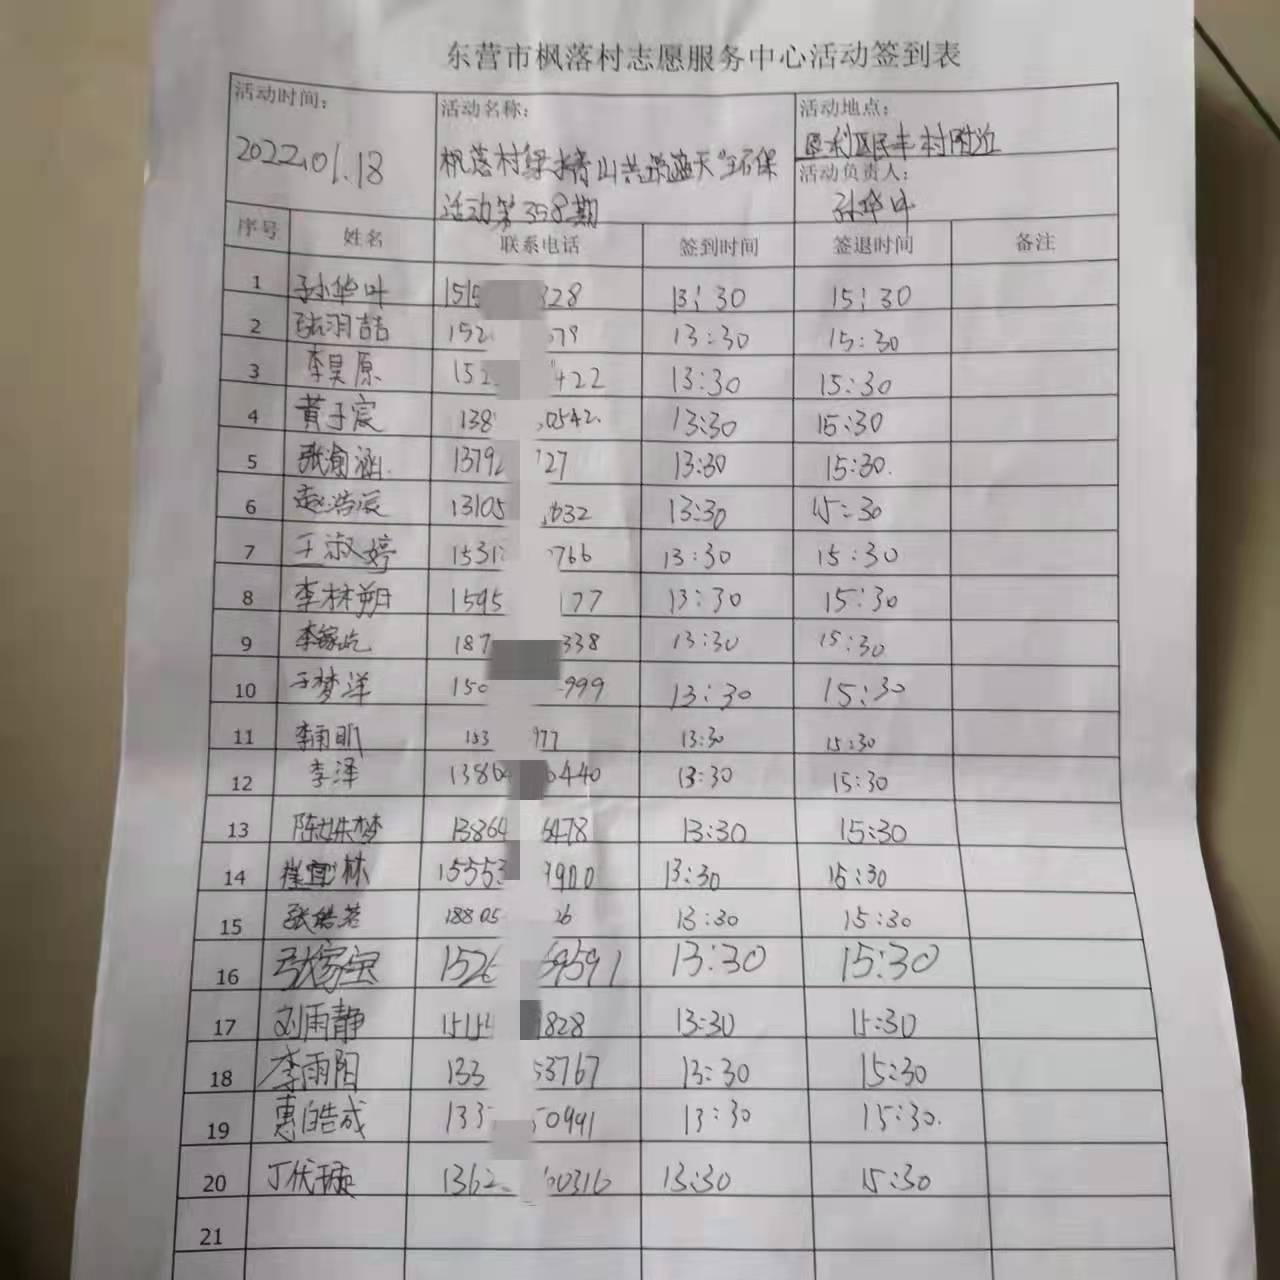 东营市枫落村志愿服务中心活动签到表
活动时间： 活动名称： 活动地点：
2022.01.18 枫落村绿水青山共录蓝天"环保 垦利区民丰村附近
活动第358期 活动负责人：
孙华叶
序号 姓名 联系电话 签到时间 签退时间 备注
1 孙华叶 151 828 13:30 15:30
2 张羽喆 152 679 13:30 15:30
3 李昊原 152 422 13:30 15:30
4 黄子宸 138 0542 13:30 15:30
5 张渝涵 13792 127 13:30 15:30
6 赵浩辰 13105 632 13:30 15:30
7 王淑婷 1531 766 13:30 15:30
8 李林朔 1595 177 13:30 15:30
9 李家屹 187 338 13:30 15:30
10 于梦洋 150 999 13:30 15:30
11 李雨 153 977 13:30 15:30
12 李泽 13864 440 13:30 15:30
13 陈姝梦 13864 6478 13:30 15:30
14 崔宜林 15553 9900 13:30 15:30
15 张皓若 18805 26 13:30 15:30
16 张家宝 1526 69591 13:30 15:30
17 刘雨静 1515 1828 13:30 15:30
18 李雨阳 133 53767 13:30 15:30
19 惠皓成 133 50991 13:30 15:30
20 丁代 1362 60316 13:30 15:30
21